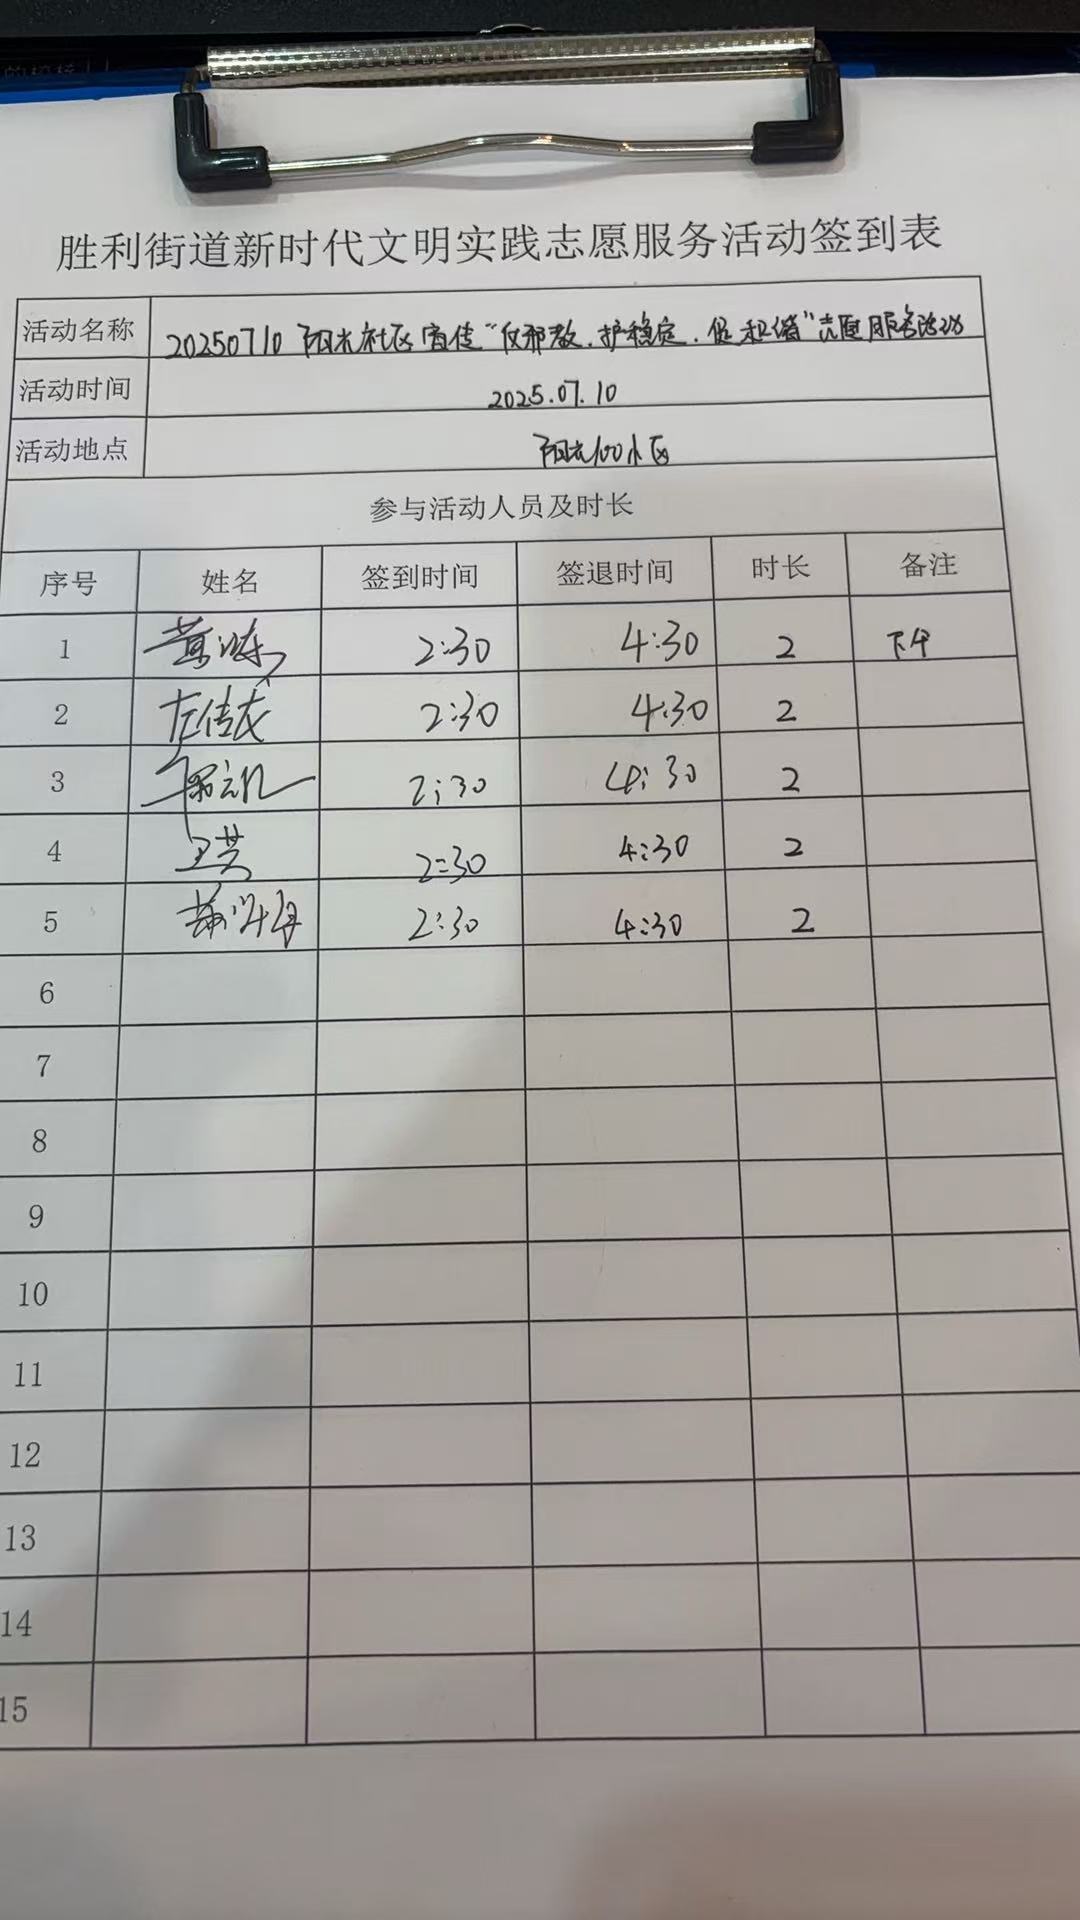 胜利街道新时代文明实践志愿服务活动签到表
活动名称 20250710 阳光社区宣传"反邪教.护稳定.促和谐"志愿服务活动
活动时间 2025.07.10
活动地点 阳光100小区
参与活动人员及时长
序号 姓名 签到时间 签退时间 时长 备注
1 2:30 4:30 2 下午
2 2:30 4:30 2
3 2:30 4:30 2
4 2:30 4:30 2
5 2:30 4:30 2
6
7
8
9
10
11
12
13
14
15